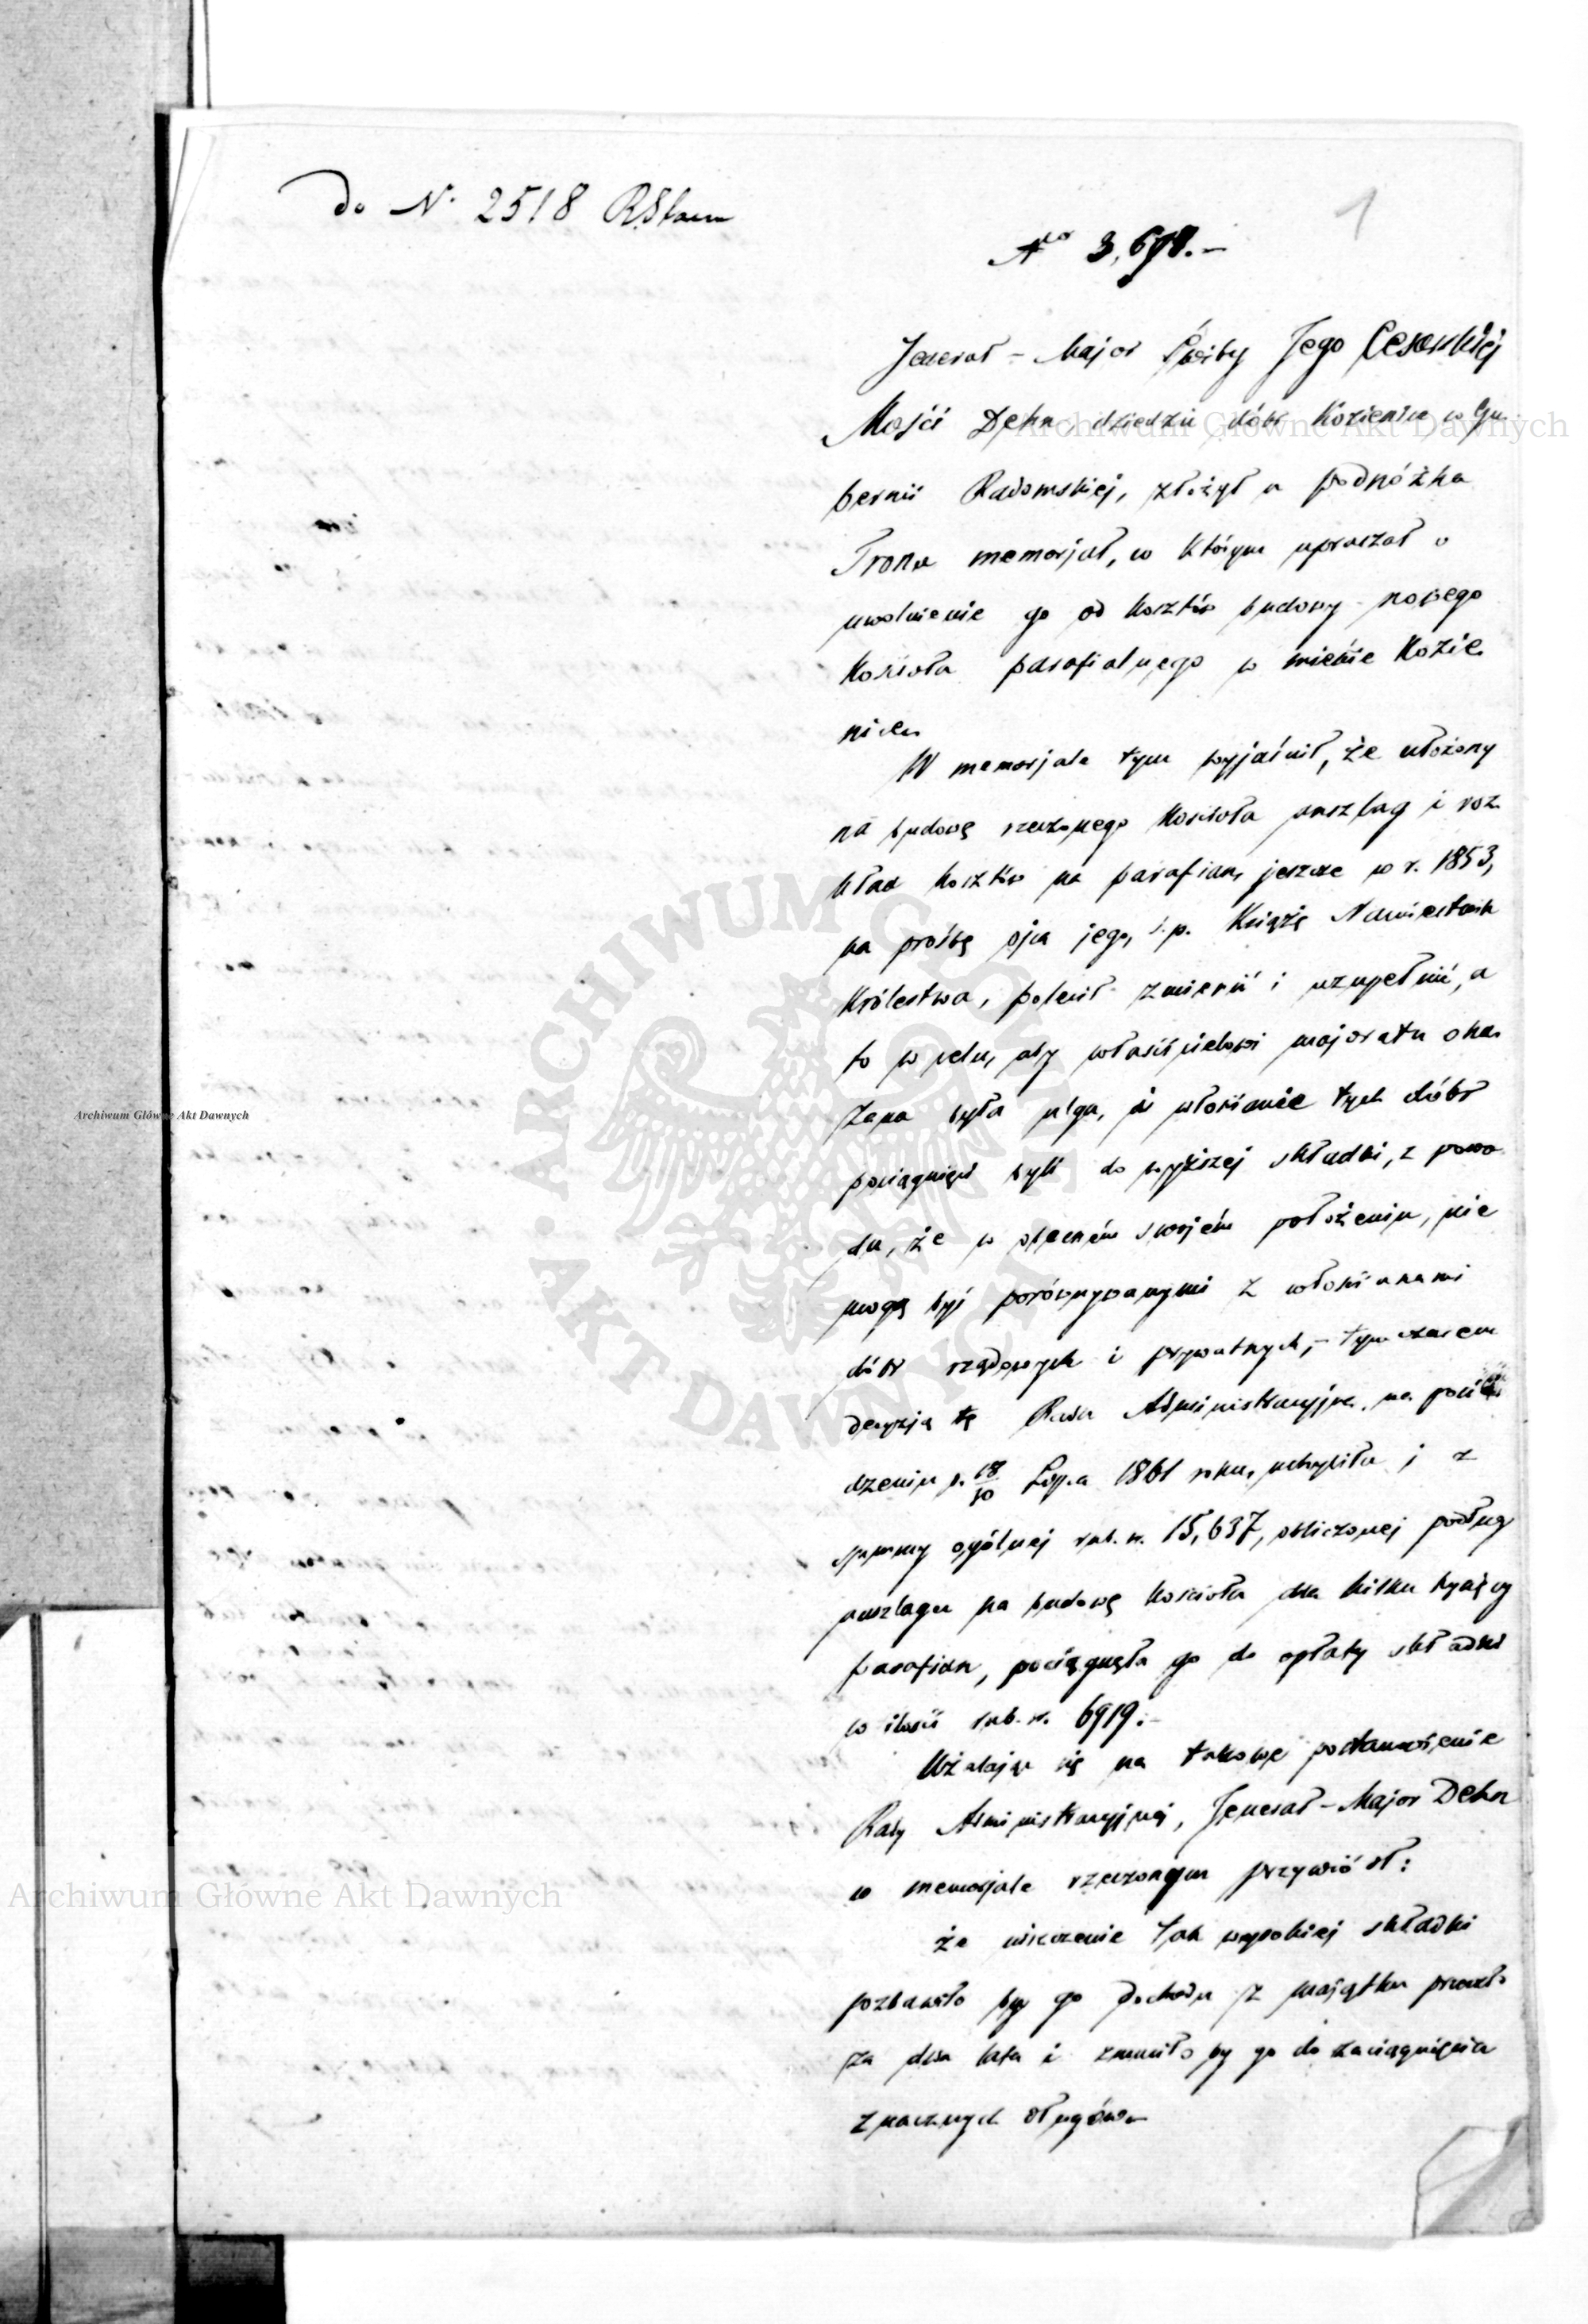 Do N. 2518 R.Stanu
1
Nro 3,698.–
Jenerał – Major Świty Jego Cesarskiej
Mości Dehn, dziedzic dóbr Kozienice w Gu-
bernii Radomskiej, złożył u podnóżka
Tronu memorjał, w którym upraszał o
uwolnienie go od kosztów budowy nowego
Kościoła parafialnego w mieście Kozie-
nicach
W memorjale tym wyjaśnił, że ułożony
na budowę rzeczonego Kościoła anszlag i roz-
kład kosztów na parafian, jeszcze w r. 1853,
na prośbę ojca jego, ś.p. Książę Namiestnik
Królestwa, polecił zmienić i uzupełnić, a
to w celu, aby właścicielowi majoratu oka-
zana była ulga, a włościanie tych dóbr
pociągnięci byli do wyższej składki, z powo-
du, że w obecném swojém położeniu, nie
mogą być porównywanymi z włościanami
dóbr rządowych i prywatnych, – tymczasem
decyzją tę Rada Administracyjna, na posie-
dzeniu d. 18/30 Lipca 1861 roku, uchyliła i z
summy ogólnej rub. sr. 15,637, obliczonej podług
anszlagu na budowę Kościoła dla kilku tysięcy
parafian, pociągnęła go do opłaty składki
w ilości rub. sr. 6919.–
Użalając się na takowe postanowienie
Rady Administracyjnej, Jenerał – Major Dehn
w memorjale rzeczonym przywiódł:
że uiszczenie tak wysokiej składki
pozbawiło by go dochodu z majątku przeszło
za dwa lata i zmusiło by go do zaciągnięcia
znacznych długów.–
Archiwum Główne Akt Dawnych
Archiwum Główne Akt Dawnych
Archiwum Główne Akt Dawnych
ARCHIWUM GŁÓWNE
AKT DAWNYCH